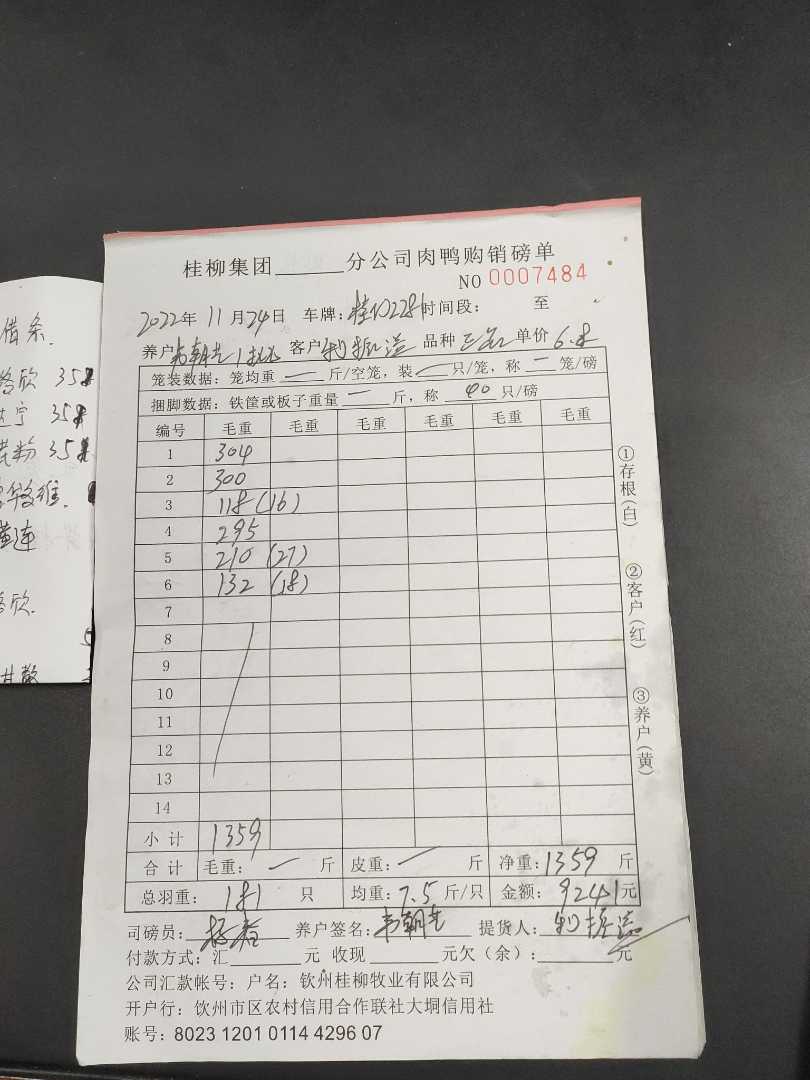 桂柳集团______分公司肉鸭购销磅单
NO 0007484
2022年 11月24日 车牌: 时间段: 至
养户 韦朝 客户 利振溢 品种 正品 单价 6.8
笼装数据:笼均重 一 斤/空笼,装 一 只/笼,称 一 笼/磅
捆脚数据:铁筐或板子重量 一 斤,称 40 只/磅
编号 毛重 毛重 毛重 毛重 毛重 毛重
1 304
2 300
3 118(16)
4 295
5 210(27)
6 132(18)
7
8
9
10
11
12
13
14
小 计 1359
合 计 毛重: 一 斤 皮重: 一 斤 净重:1359 斤
总羽重: 181 只 均重:7.5 斤/只 金额:9241元
司磅员: 养户签名:韦朝 提货人:利振溢
付款方式:汇______元 收现______元欠(余):______元
公司汇款帐号:户名:钦州桂柳牧业有限公司
开户行:钦州市区农村信用合作联社大垌信用社
账号:8023 1201 0114 4296 07
①存根(白)
②客户(红)
③养户(黄)
借条.
欣 358
宁 358
粉 358
维.
莲
欣.